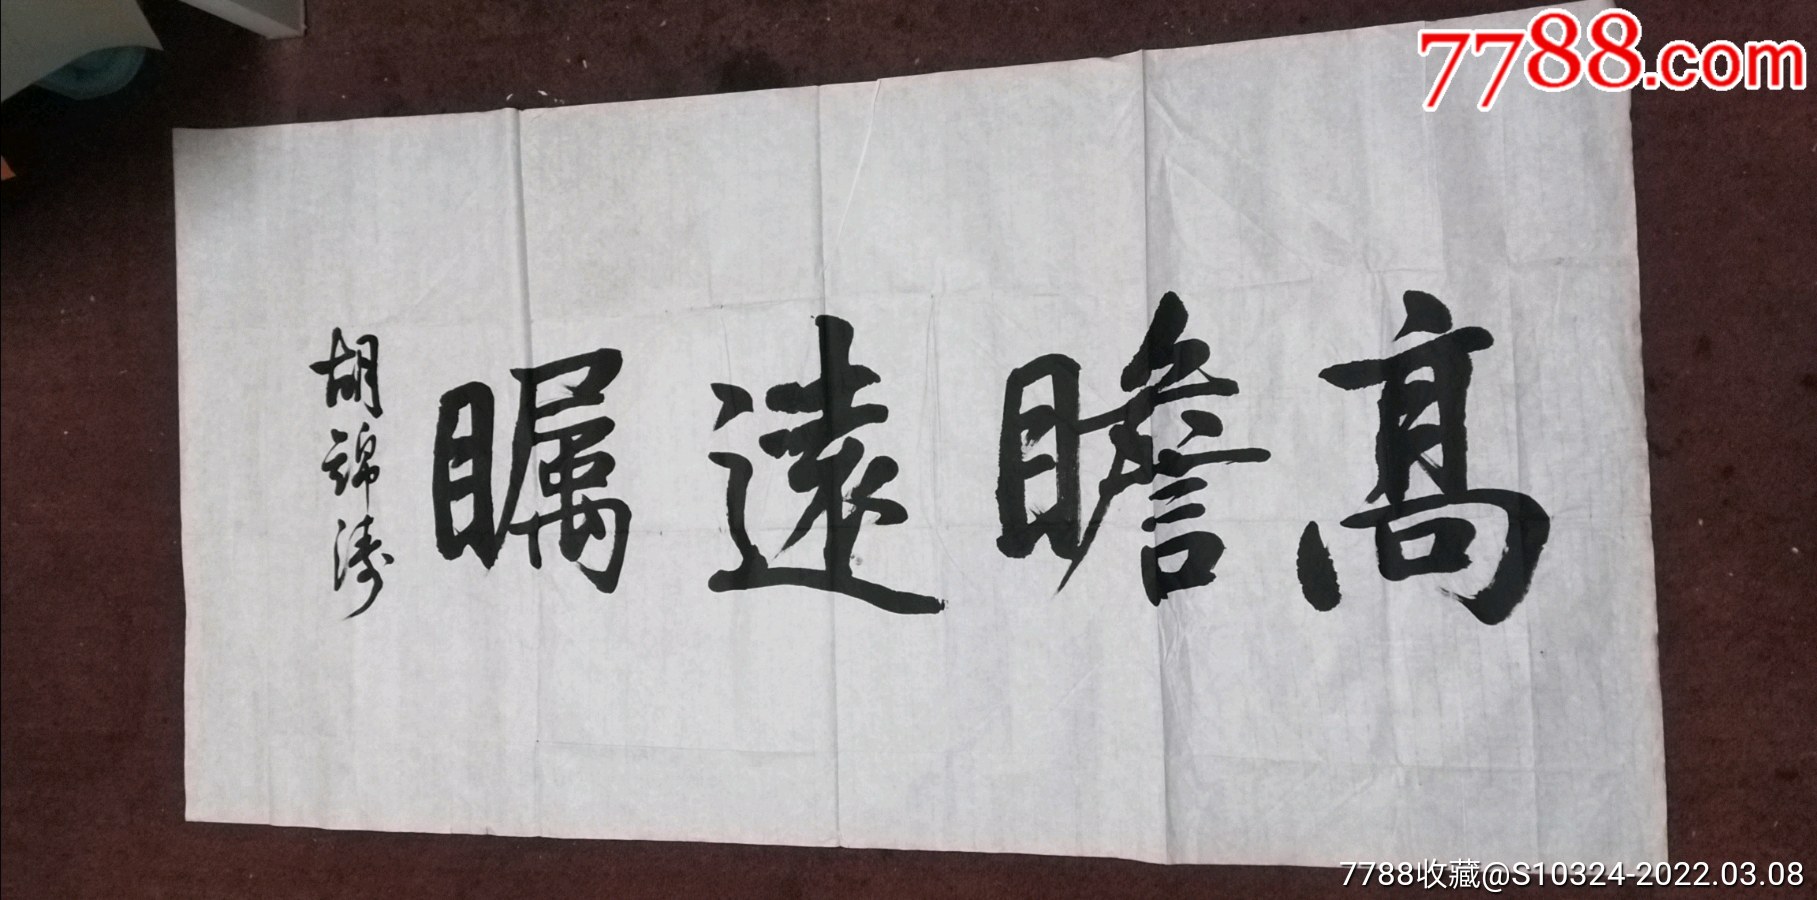 7788.com
高瞻遠瞩
胡錦濤
7788收藏@S10324-2022.03.08